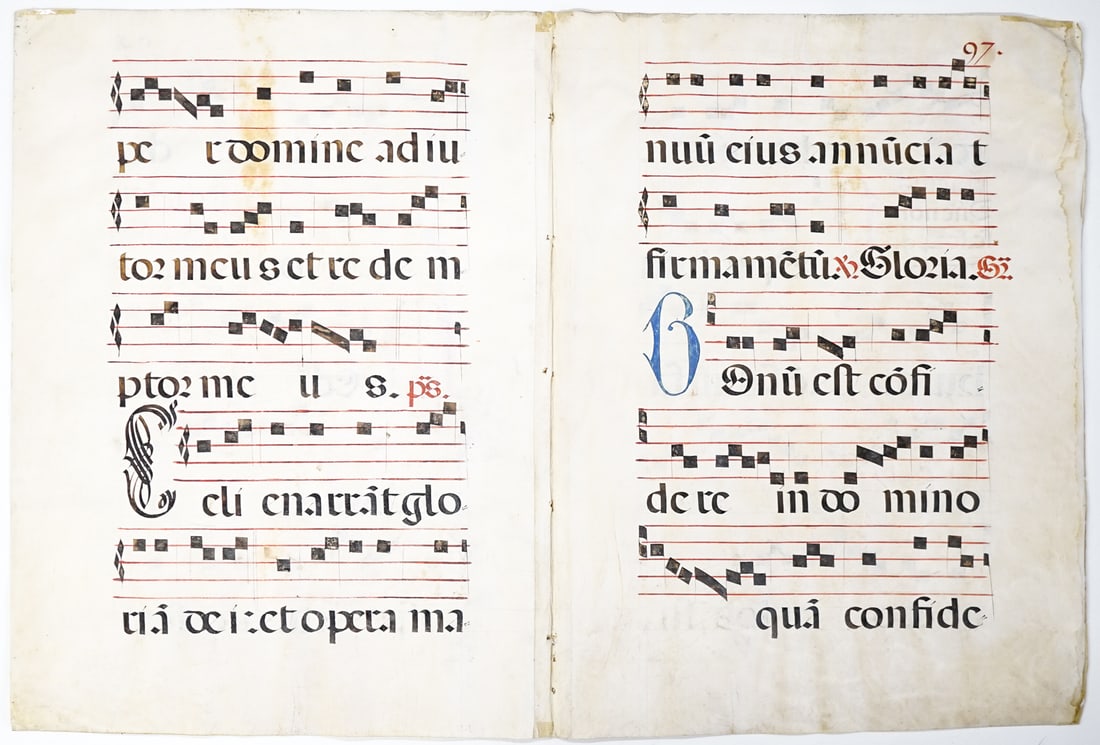 pe r domine adiu
tor meus et re de m
ptor me u s. ps.
Celi enarrāt glo
riā dei: et opera ma
97.
nuū eius annūcia t
firmamētū Gloria. Gr.
Bonū est cōfi
dere in do mino
quā confide